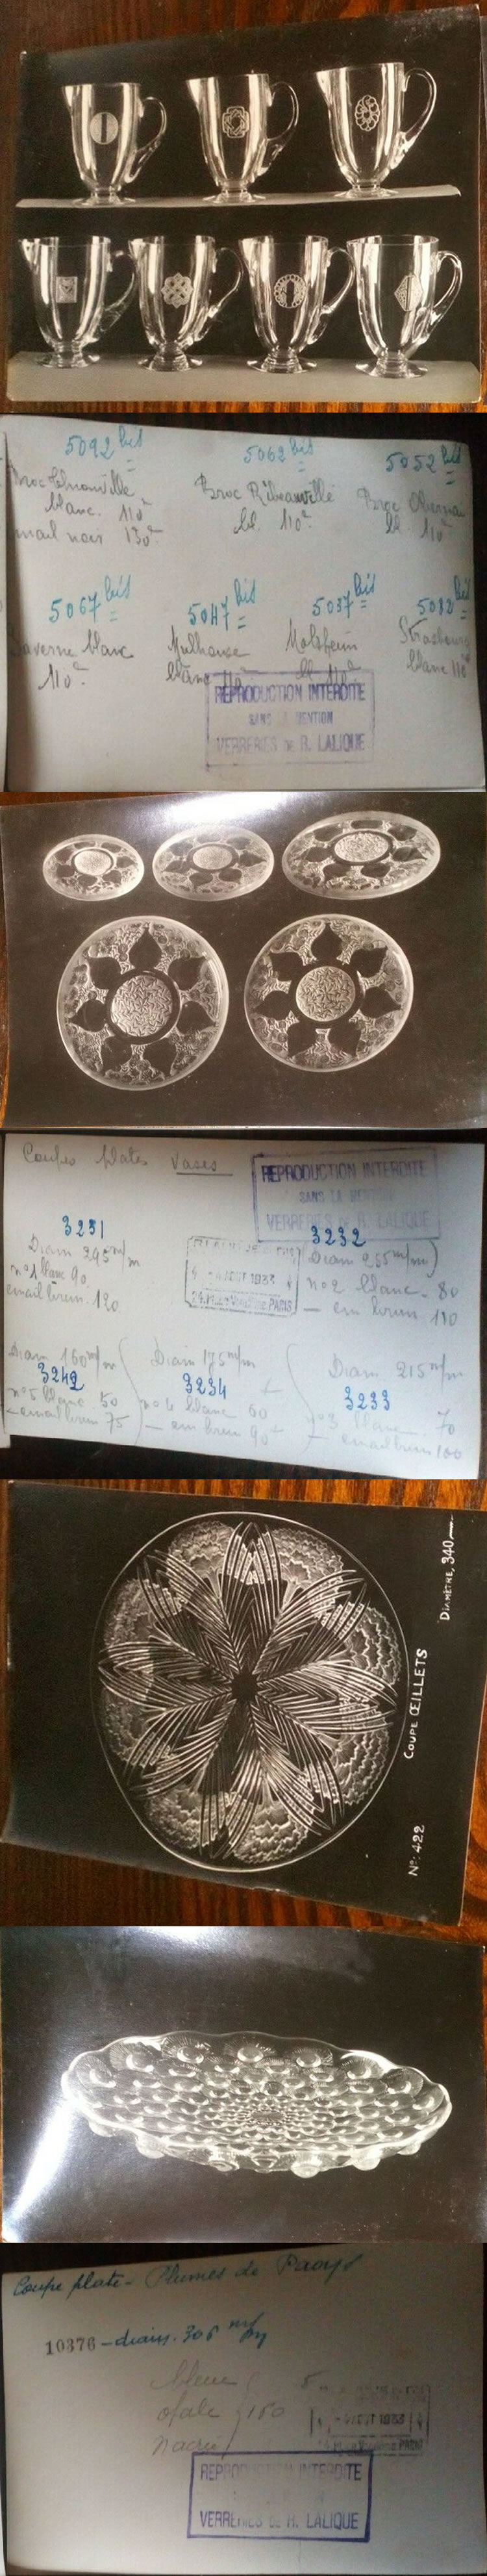 5092 bis
5062 bis
5052 bis
Broc Thionville
blanc. 110
email noir 130
Broc Ribeauvillé
bl. 110
Broc Obernai
bl. 110
5067 bis
5047 bis
5037 bis
5082 bis
Saverne blanc
110
Mulhouse
blanc 110
Molsheim
bl. 110
Strasbourg
blanc 110
REPRODUCTION INTERDITE
SANS LA MENTION
VERRERIES DE R. LALIQUE
Coupes plates Vases
REPRODUCTION INTERDITE
SANS LA MENTION
VERRERIES DE R. LALIQUE
3231
Diam m/m
n°1 blanc 90
email brun. 120
3232
(Diam 255 m/m)
n°2 blanc - 80
— em brun 110
PARIS
Diam 160 m/m
3242
n°5 blanc 50
— email brun 75
Diam 175 m/m
3234
n°4 blanc 60
— em brun 90
Diam 215 m/m
3233
n°3 blanc 70
— email brun 100
N°: 422 COUPE ŒILLETS DIAMÈTRE, 340
Coupe plate - Plumes de
10376 - diam. 305 m/m
bleue
opale 150
nacré
PARIS
REPRODUCTION INTERDITE
VERRERIES DE R. LALIQUE